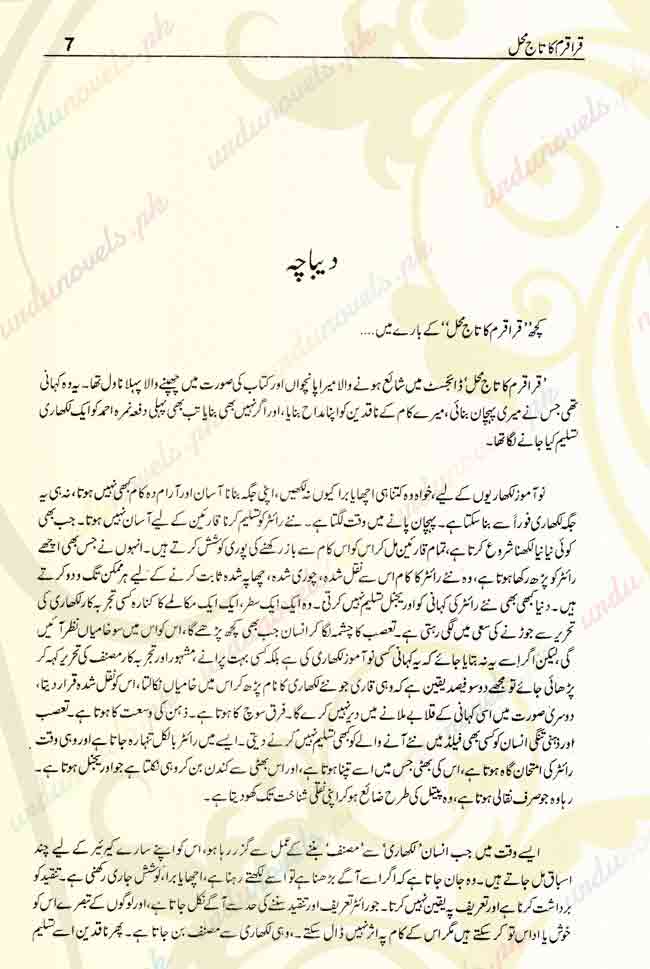 قراقرم کا تاج محل
7
دیباچہ
کچھ ”قراقرم کا تاج محل“ کے بارے میں ....
’قراقرم کا تاج محل‘ ڈائجسٹ میں شائع ہونے والا میرا پانچواں اور کتاب کی صورت میں چھپنے والا پہلا ناول تھا۔ یہ وہ کہانی
تھی جس نے میری پہچان بنائی، میرے کام کے ناقدین کو اپنا مداح بنایا، اور اگر نہیں بھی بنایا تب بھی پہلی دفعہ نمرہ احمد کو ایک لکھاری
تسلیم کیا جانے لگا تھا۔
نو آموز لکھاریوں کے لیے، خواہ وہ کتنا ہی اچھا یا برا کیوں نہ لکھیں، اپنی جگہ بنانا آسان اور آرام دہ کام کبھی نہیں ہوتا، نہ ہی یہ
جگہ لکھاری فوراً سے بنا سکتا ہے۔ پہچان پانے میں وقت لگتا ہے۔ نئے رائٹر کو تسلیم کرنا قارئین کے لیے آسان نہیں ہوتا۔ جب بھی
کوئی نیا نیا لکھنا شروع کرتا ہے، تمام قارئین مل کر اس کو اس کام سے باز رکھنے کی پوری کوشش کرتے ہیں۔ انہوں نے جس بھی اچھے
رائٹر کو پڑھ رکھا ہوتا ہے، وہ نئے رائٹر کا کام اس سے نقل شدہ، چوری شدہ، چھاپہ شدہ ثابت کرنے کے لیے ہر ممکن تگ و دو کرتے
ہیں۔ دنیا کبھی بھی نئے رائٹر کی کہانی کو اوریجنل تسلیم نہیں کرتی۔ وہ ایک ایک سطر، ایک ایک مکالمے کا کنارہ کسی تجربہ کار لکھاری کی
تحریر سے جوڑنے کی سعی میں لگی رہتی ہے۔ تعصب کا چشمہ لگا کر انسان جب بھی کچھ پڑھے گا، اس کو اس میں سو خامیاں نظر آئیں
گی، لیکن اگر اسے یہ نہ بتایا جائے کہ یہ کہانی کسی نو آموز لکھاری کی ہے بلکہ کسی بہت پرانے، مشہور اور تجربہ کار مصنف کی تحریر کہہ کر
پڑھائی جائے تو مجھے دو سو فیصد یقین ہے کہ وہی قاری جو نئے لکھاری کا نام پڑھ کر اس میں خامیاں نکالتا، اس کو نقل شدہ قرار دیتا،
دوسری صورت میں اسی کہانی کے قلابے ملانے میں دیر نہیں کرے گا۔ فرق سوچ کا ہوتا ہے۔ ذہن کی وسعت کا ہوتا ہے۔ تعصب
اور ذہنی تنگی انسان کو کسی بھی فیلڈ میں نئے آنے والے کو کبھی تسلیم نہیں کرنے دیتی۔ ایسے میں رائٹر بالکل تنہا رہ جاتا ہے اور وہی وقت
رائٹر کی امتحان گاہ ہوتا ہے، اس کی بھٹی جس میں اسے تپنا ہوتا ہے، اور اس بھٹی سے کندن بن کر وہی نکلتا ہے جو اوریجنل ہوتا ہے۔
رہا وہ جو صرف نقالی ہوتا ہے، وہ پیتل کی طرح ضائع ہو کر اپنی نقلی شناخت تک کھو دیتا ہے۔
ایسے وقت میں جب انسان ’لکھاری‘ سے ’مصنف‘ بننے کے عمل سے گزر رہا ہو، اس کو اپنے سارے کیرئیر کے لیے چند
اسباق مل جاتے ہیں۔ وہ جان جاتا ہے کہ اگر اسے آگے بڑھنا ہے تو اسے لکھتے رہنا ہے، اچھا یا برا، کوشش جاری رکھنی ہے۔ تنقید کو
برداشت کرنا ہے اور تعریف پہ یقین نہیں کرنا۔ جو رائٹر تعریف اور تنقید سننے کی حد سے آگے نکل جاتا ہے، اور لوگوں کے تبصرے اس کو
خوش یا اداس تو کر سکتے ہیں مگر اس کے کام پہ اثر نہیں ڈال سکتے۔، وہی لکھاری سے مصنف بن جاتا ہے۔ پھر ناقدین اسے تسلیم
urdunovels.pk
urdunovels.pk
urdunovels.pk
urdunovels.pk
urdunovels.pk